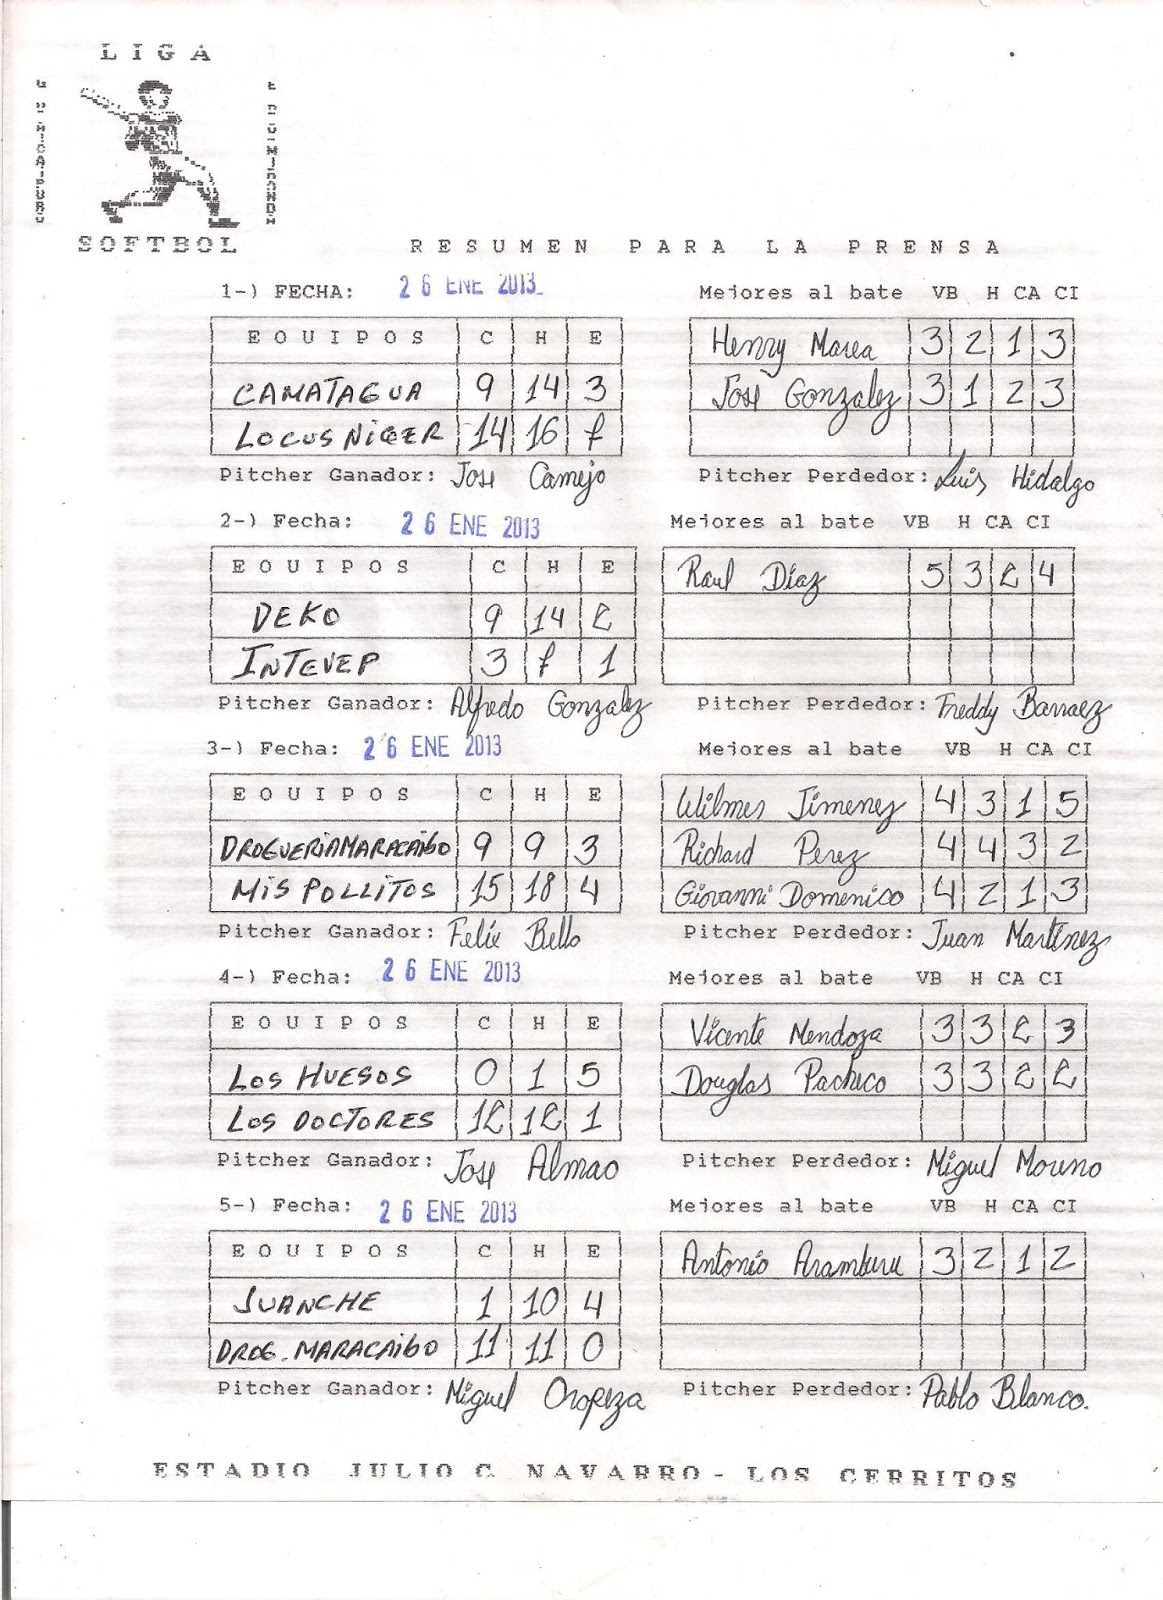 LIGA
GUAICAIPURO
E D O MIRANDA
SOFTBOL
RESUMEN PARA LA PRENSA
1-) FECHA: 26 ENE 2013 Mejores al bate VB H CA CI
EQUIPOS C H E Henry Marea 3 2 1 3
CAMATAGUA 9 14 3 Jose Gonzalez 3 1 2 3
LOCUS NIGER 14 16 7
Pitcher Ganador: Jose Camejo Pitcher Perdedor: Luis Hidalgo
2-) Fecha: 26 ENE 2013 Mejores al bate VB H CA CI
EQUIPOS C H E Raul Diaz 5 3 2 4
DEKO 9 14 2
INTEVEP 3 7 1
Pitcher Ganador: Alfredo Gonzalez Pitcher Perdedor: Freddy Barraez
3-) Fecha: 26 ENE 2013 Mejores al bate VB H CA CI
EQUIPOS C H E Wilmer Jimenez 4 3 1 5
DROGUERIA MARACAIBO 9 9 3 Richard Perez 4 4 3 2
MIS POLLITOS 15 18 4 Giovanni Domenico 4 2 1 3
Pitcher Ganador: Felix Bello Pitcher Perdedor: Juan Martinez
4-) Fecha: 26 ENE 2013 Mejores al bate VB H CA CI
EQUIPOS C H E Vicente Mendoza 3 3 2 3
LOS HUESOS 0 1 5 Douglas Pacheco 3 3 2 2
LOS DOCTORES 12 12 1
Pitcher Ganador: Jose Almao Pitcher Perdedor: Miguel Moreno
5-) Fecha: 26 ENE 2013 Mejores al bate VB H CA CI
EQUIPOS C H E Antonio Aramburu 3 2 1 2
JUANCHE 1 10 4
DROG. MARACAIBO 11 11 0
Pitcher Ganador: Miguel Oropeza Pitcher Perdedor: Pablo Blanco.
ESTADIO JULIO C. NAVARRO - LOS CERRITOS